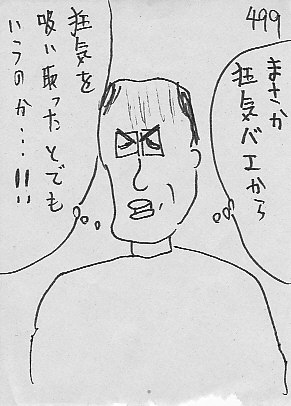 499
まさか
狂気バエから
狂気を
吸い取ったとでも
いうのか…!!